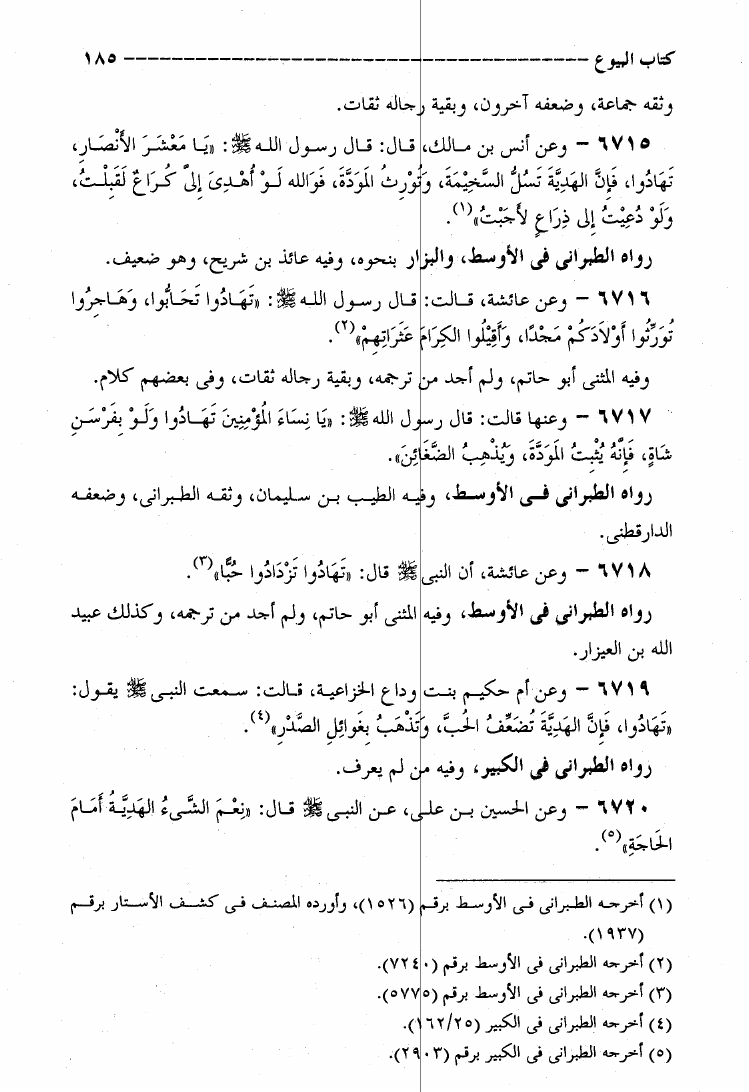 كتاب البيوع ------------------------------------------ ١٨٥
وثقه جماعة، وضعفه آخرون، وبقية رجاله ثقات.
٦٧١٥ – وعن أنس بن مالك، قال: قال رسول الله ﷺ: «يَا مَعْشَرَ الأَنْصَارِ،
تَهَادُوا، فَإِنَّ الهَدِيَّةَ تَسُلُّ السَّخِيْمَةَ، وَتُوْرِثُ المَوَدَّةَ، فَوَالله لَوْ أُهْدِىَ إِلىَّ كُرَاعٌ لَقَبِلْتُ،
وَلَوْ دُعِيْتُ إِلى ذِرَاعٍ لأَجَبْتُ»(١).
رواه الطبرانى فى الأوسط، والبزار بنحوه، وفيه عائذ بن شريح، وهو ضعيف.
٦٧١٦ – وعن عائشة، قالت: قال رسول الله ﷺ: «تَهَادُوا تَحَابُّوا، وَهَاجِرُوا
تُوَرِّثُوا أَوْلاَدَكُمْ مَجْدًا، وَأَقِيْلُوا الكِرَامَ عَثَرَاتِهِمْ»(٢).
وفيه المثنى أبو حاتم، ولم أجد من ترجمه، وبقية رجاله ثقات، وفى بعضهم كلام.
٦٧١٧ – وعنها قالت: قال رسول الله ﷺ: «يَا نِسَاءَ المُؤْمِنِينَ تَهَادُوا وَلَوْ بِفِرْسَنِ
شَاةٍ، فَإِنَّهُ يُثْبِتُ المَوَدَّةَ، وَيُذْهِبُ الضَّغَائِنَ».
رواه الطبرانى فى الأوسط، وفيه الطيب بن سليمان، وثقه الطبرانى، وضعفه
الدارقطنى.
٦٧١٨ – وعن عائشة، أن النبى ﷺ قال: «تَهَادُوا تَزْدَادُوا حُبًّا»(٣).
رواه الطبرانى فى الأوسط، وفيه المثنى أبو حاتم، ولم أجد من ترجمه، وكذلك عبيد
الله بن العيزار.
٦٧١٩ – وعن أم حكيم بنت وداع الخزاعية، قالت: سمعت النبى ﷺ يقول:
«تَهَادُوا، فَإِنَّ الهَدِيَّةَ تُضَعِّفُ الحُبَّ، وَتَذْهَبُ بِغَوائِلِ الصَّدْرِ»(٤).
رواه الطبرانى فى الكبير، وفيه من لم يعرف.
٦٧٢٠ – وعن الحسين بن على، عن النبى ﷺ قال: «نِعْمَ الشَّىءُ الهَدِيَّةُ أَمَامَ
الحَاجَةِ»(٥).
(١) أخرجه الطبرانى فى الأوسط برقم (١٥٢٦)، وأورده المصنف فى كشف الأستار برقم
(١٩٣٧).
(٢) أخرجه الطبرانى فى الأوسط برقم (٧٢٤٠).
(٣) أخرجه الطبرانى فى الأوسط برقم (٥٧٧٥).
(٤) أخرجه الطبرانى فى الكبير (١٦٢/٢٥).
(٥) أخرجه الطبرانى فى الكبير برقم (٢٩٠٣).